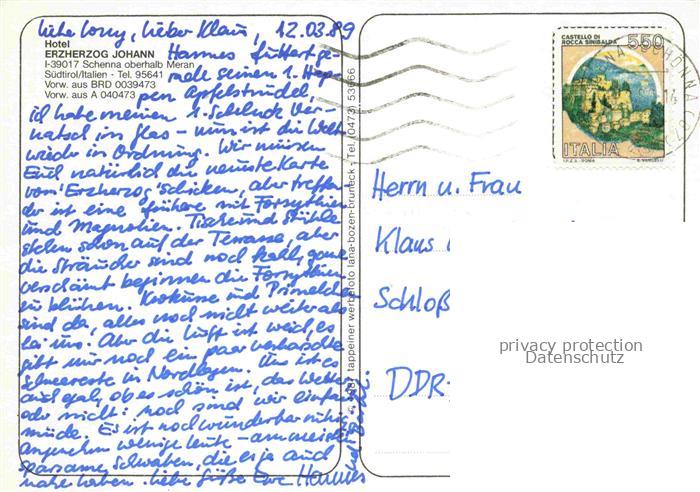 Liebe Lony, lieber Klaus, 12.03.89
Hotel
ERZHERZOG JOHANN
I-39017 Schenna oberhalb Meran
Südtirol/Italien - Tel. 95641
Vorw. aus BRD 0039473
Vorw. aus A 040473
Hannes futtert ge-
rade seinen 1. Hap-
pen Apfelstrudel,
ich habe meinen 1. Schluck Ver-
natsch im Glas - nun ist die Welt
wieder in Ordnung. Wir müssen
Euch natürlich die neueste Karte
vom Erzherzog schicken, aber treffen-
der ist eine frühere mit Forsythien
und Magnolien. Tische und Stühle
stehen schon auf der Terrasse, aber
die Sträucher sind noch kahl, ganz
verschämt beginnen die Forsythien
zu blühen. Krokusse und Primelchen
sind da, alles noch nicht weiter als
bei uns. Aber die Luft ist weich, es
gibt nur noch ein paar verharschte
Schneereste in Nordlagen. Uns ist es
auch egal, ob es schön ist, das Wetter
oder nicht: noch sind wir einfach
müde. Es ist noch wunderbar ruhig
angenehm wenige Leute - am meisten
sparsame Schwaben, die es ja auch
nahe haben. Liebe Grüße Eure Hannes
und
tappeiner werbefoto lana-bozen-bruneck - Tel. (0473) 53666
CASTELLO DI
ROCCA SINIBALDA
550
ITALIA
I.P.Z.S. - ROMA
Herrn u. Frau
Klaus
Schloß
DDR-
privacy protection
Datenschutz